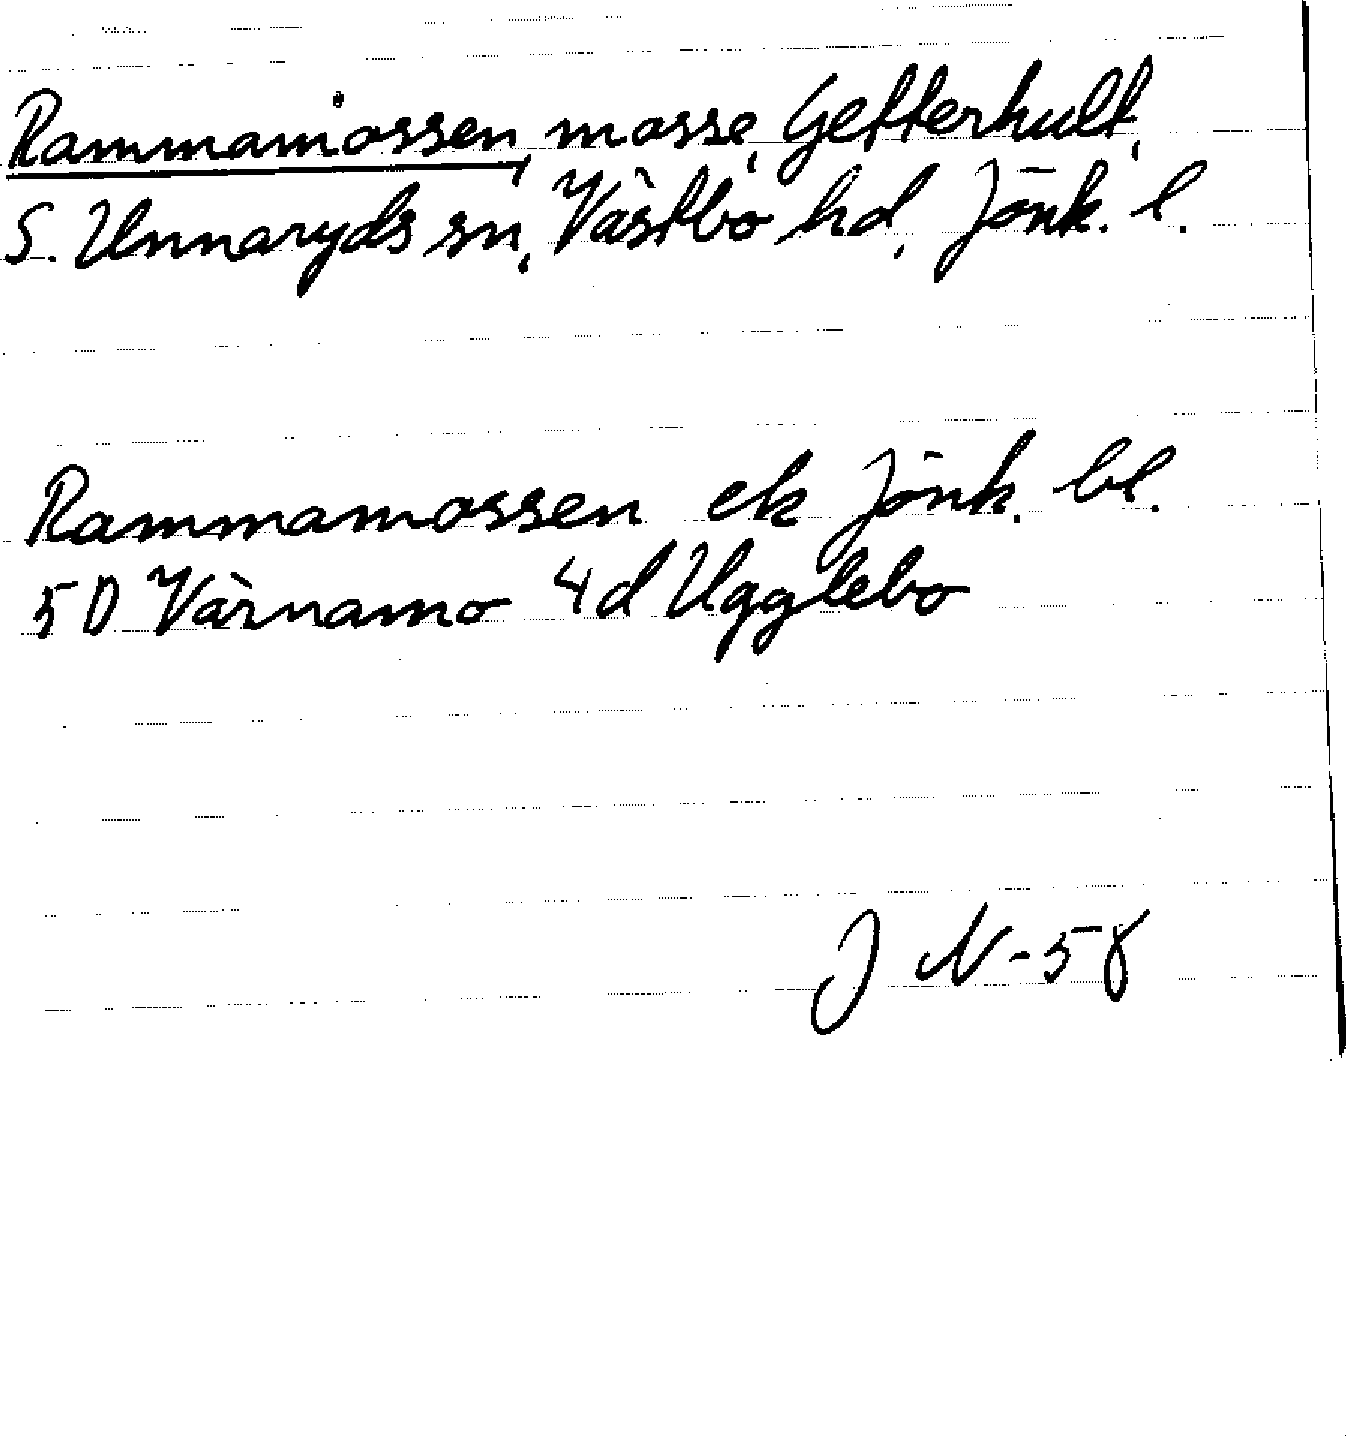 Rammamossen, mosse, Getterhult,
S. Unnaryds sn, Västbo hd, Jönk. l.
Rammamossen ek Jönk. bl.
5D Värnamo 4d Ugglebo
J N-58